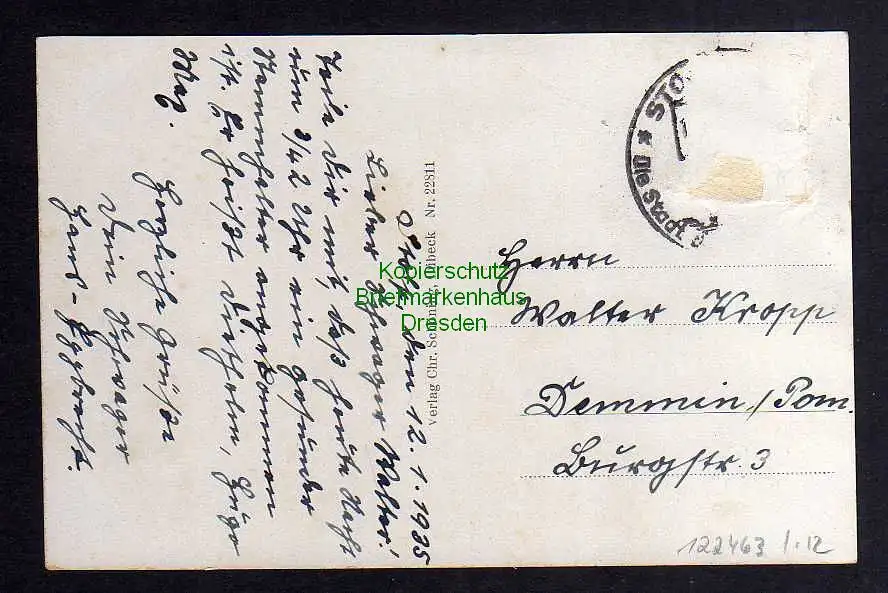 Stolp, den 12.1.1935
Lieber Schwager Walter!
Teile Dir mit, daß heute Nacht
um 3/4 2 Uhr ein gesunder
Stammhalter angekommen
ist. Er heißt Diethelm, Hugo
Herzliche Grüße
Dein Schwager
Hans-
Verlag Chr. Schöning, Lübeck Nr. 22811
STO
* Die Stadt
Kopierschutz
Briefmarkenhaus
Dresden
Herrn
Walter Kropp
Demmin/Pom.
Burgstr. 3
122463 1.12